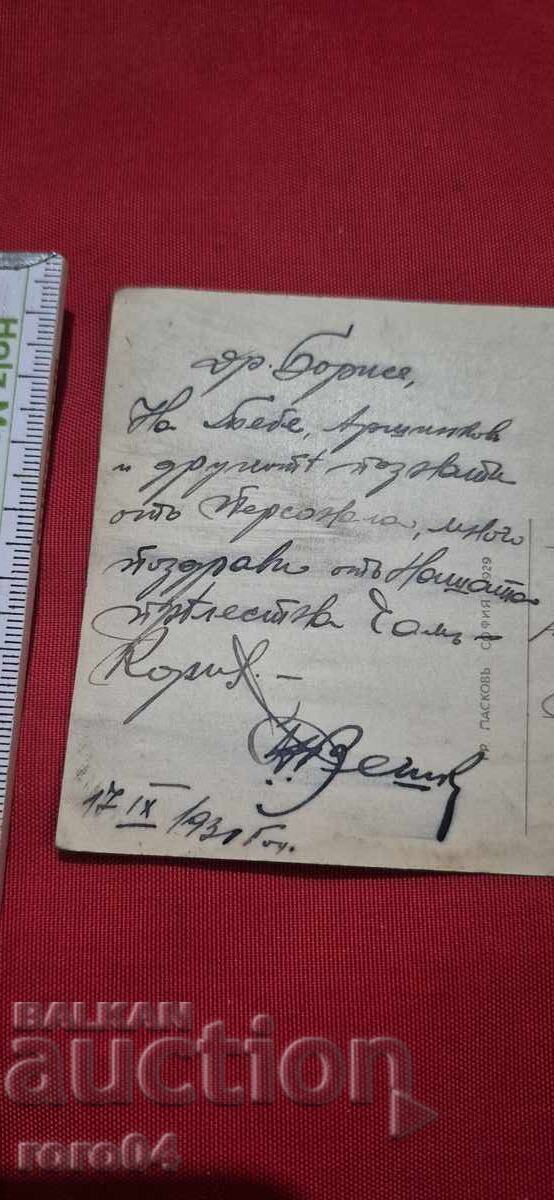 др. Борисе,
На Тебе, Аршинков
и другитѣ познати
отъ Персонала, много
поздрави отъ Нашата
прѣлестна Чамъ-
Кория. –
17 IX 1931 год.
ГР. ПАСКОВЪ СОФИЯ 1929
BALKAN
auction
roro04